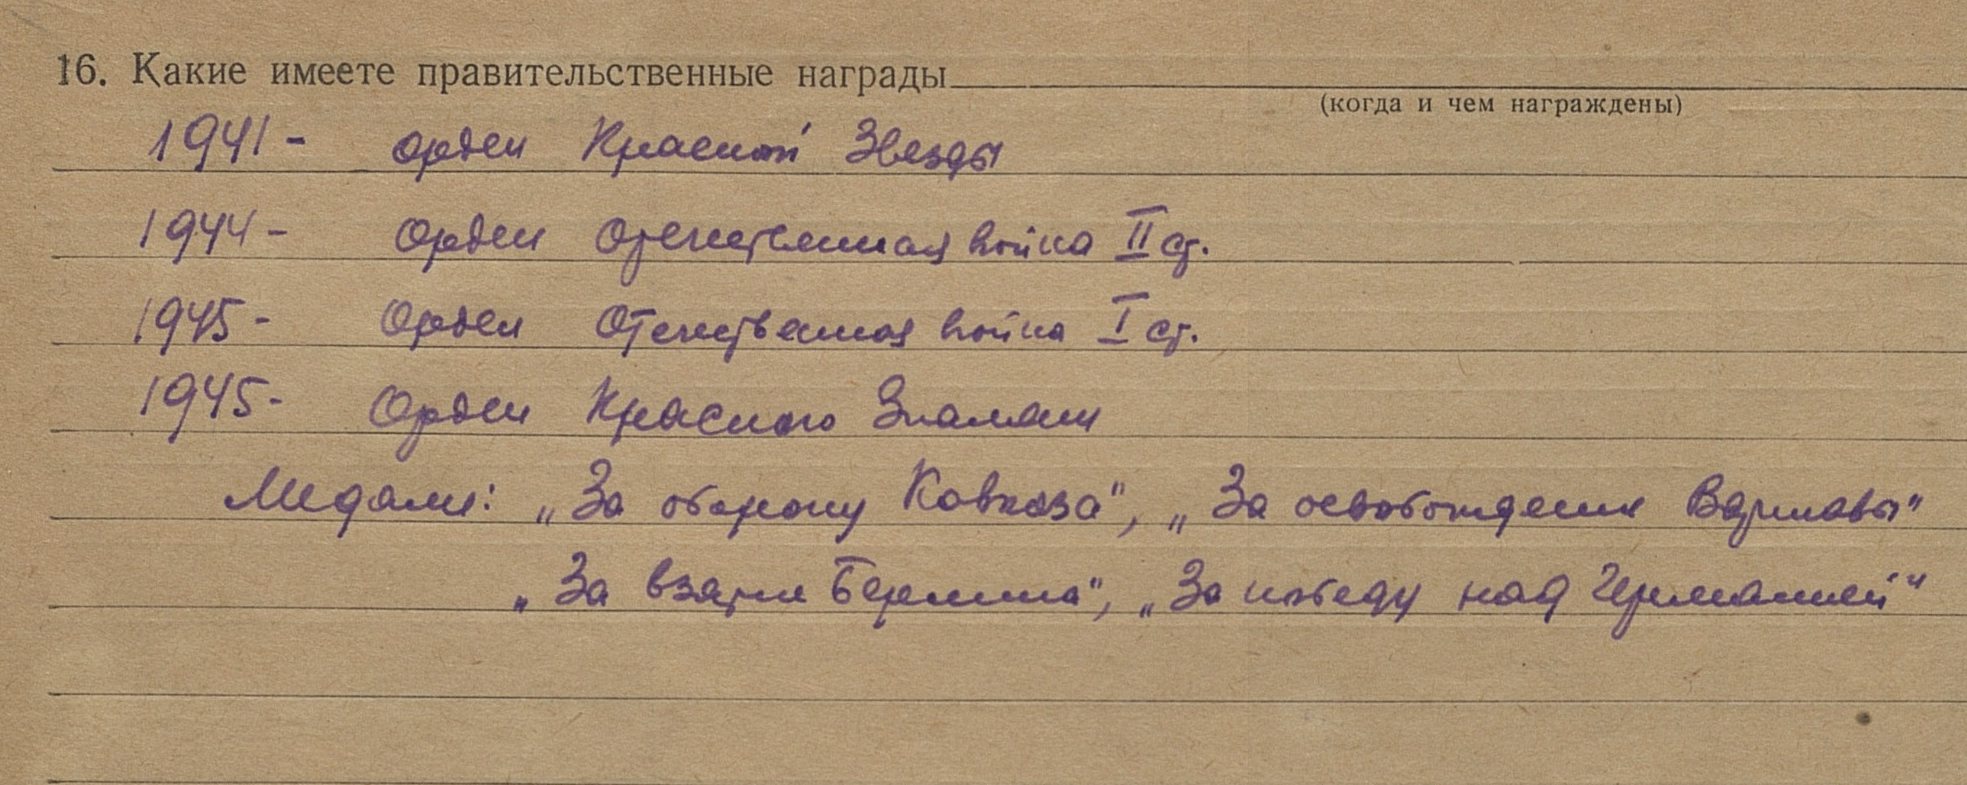 16. Какие имеете правительственные награды
(когда и чем награждены)
1941 - орден Красной Звезды
1944 - Орден Отечественная война II ст.
1945 - Орден Отечественная война I ст.
1945 - Орден Красного Знамени
Медали: „За оборону Кавказа", „За освобождение Варшавы"
„За взятие Берлина", „За победу над Германией"